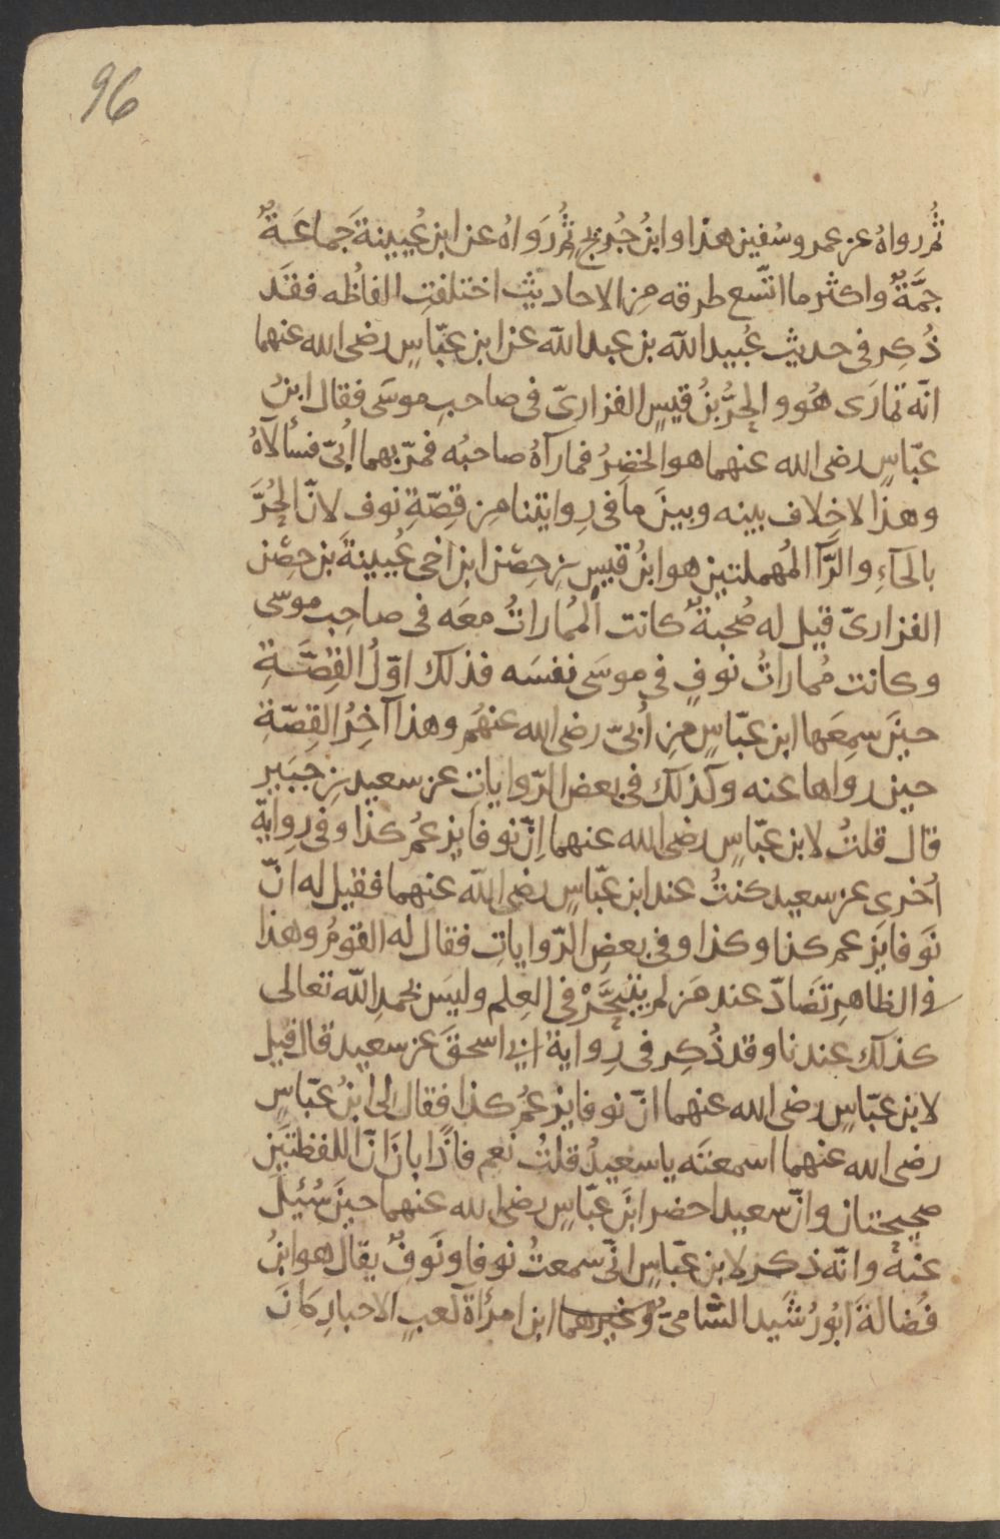 96
ثُمّ رواهُ عن عمرو سُفين هذا وابنُ جُرَيجٍ ثُمّ رَوَاهُ عن ابن عُيَينةَ جَماعَةٌ
جمَّةٌ واكثر ما اتّسع طرقه مِن الاحاديث اختلفتِ الفاظُه فقَد
ذُكِر فى حديث عُبيد الله بن عبد الله عن ابن عبّاسٍ رضى الله عنهما
انّه تمارَى هُو و الحُرُّ بنُ قيسٍ الفزارىّ فى صاحبِ موسَى فقال ابنُ
عبّاسٍ رضى الله عنهما هو الخضِرُ فمارآهُ صاحبُه فمرّ بهما اُبىّ فسألآهُ
وهذا لا خِلاف بينه وبينَ ما فى رِوايتنا مِن قِصّةِ نوف لانّ الحُرَّ
بالحآءِ والرّآ المُهملتين هو ابنُ قيسِ بنِ حِصْن ابن اخى عُيينةَ بن حِصْن
الفزارىّ قيل له صُحبةٌ كانت المُماراتُ معَه فى صاحِب موسى
وكانت مُماراتُ نوفٍ فى موسَى نفسَه فذلك اوّلُ القِصَّةِ
حينَ سمِعَها ابن عبّاسٍ مِن اُبىّ رضى الله عنهُم وهذا آخِرُ القِصّةِ
حين رواها عنه وكذلك فى بعض الرّوايات عن سعيد بنِ جُبَيرٍ
قال قلتُ لابن عبّاسٍ رضى الله عنهما اِنّ نوفا يزعمُ كذا وفى رِوايةٍ
اُخرى عن سعيد كنتُ عند ابن عبّاسٍ رضى الله عنهما فقيل له انّ
نَوفا يَزعم كذا وكذا وفى بعضِ الرّواياتِ فقال له القومُ وهذا
فى الظّاهِرِ تضَادّ عند مَن لم يتبحَّرْ فى العِلم وليسَ بحمدِ الله تعالى
كذلك عندنا وقد ذُكِر فى رِواية ابى اسحقَ عن سعيد قال قيل
لابن عبّاسٍ رضى الله عنهما انّ نوفا يزعمُ كذا فقال لى ابنُ عبّاسٍ
رضى الله عنهما اسمعتَه يا سعيدُ قلتُ نعم فاذًا بانَ انّ اللفظتَين
صحيحتان وانّ سعيدا حضر ابنَ عبّاسٍ رضى الله عنهما حينَ سُئِلَ
عنهُ وانّه ذكر لابن عبّاسٍ انّى سمعتُ نوفا ونَوفٌ يقال هو ابنُ
فُضالةَ ابُو رُشَيد الشّامىّ وغيرهما ابن امرأة كعبِ الاحبارِ كانَ